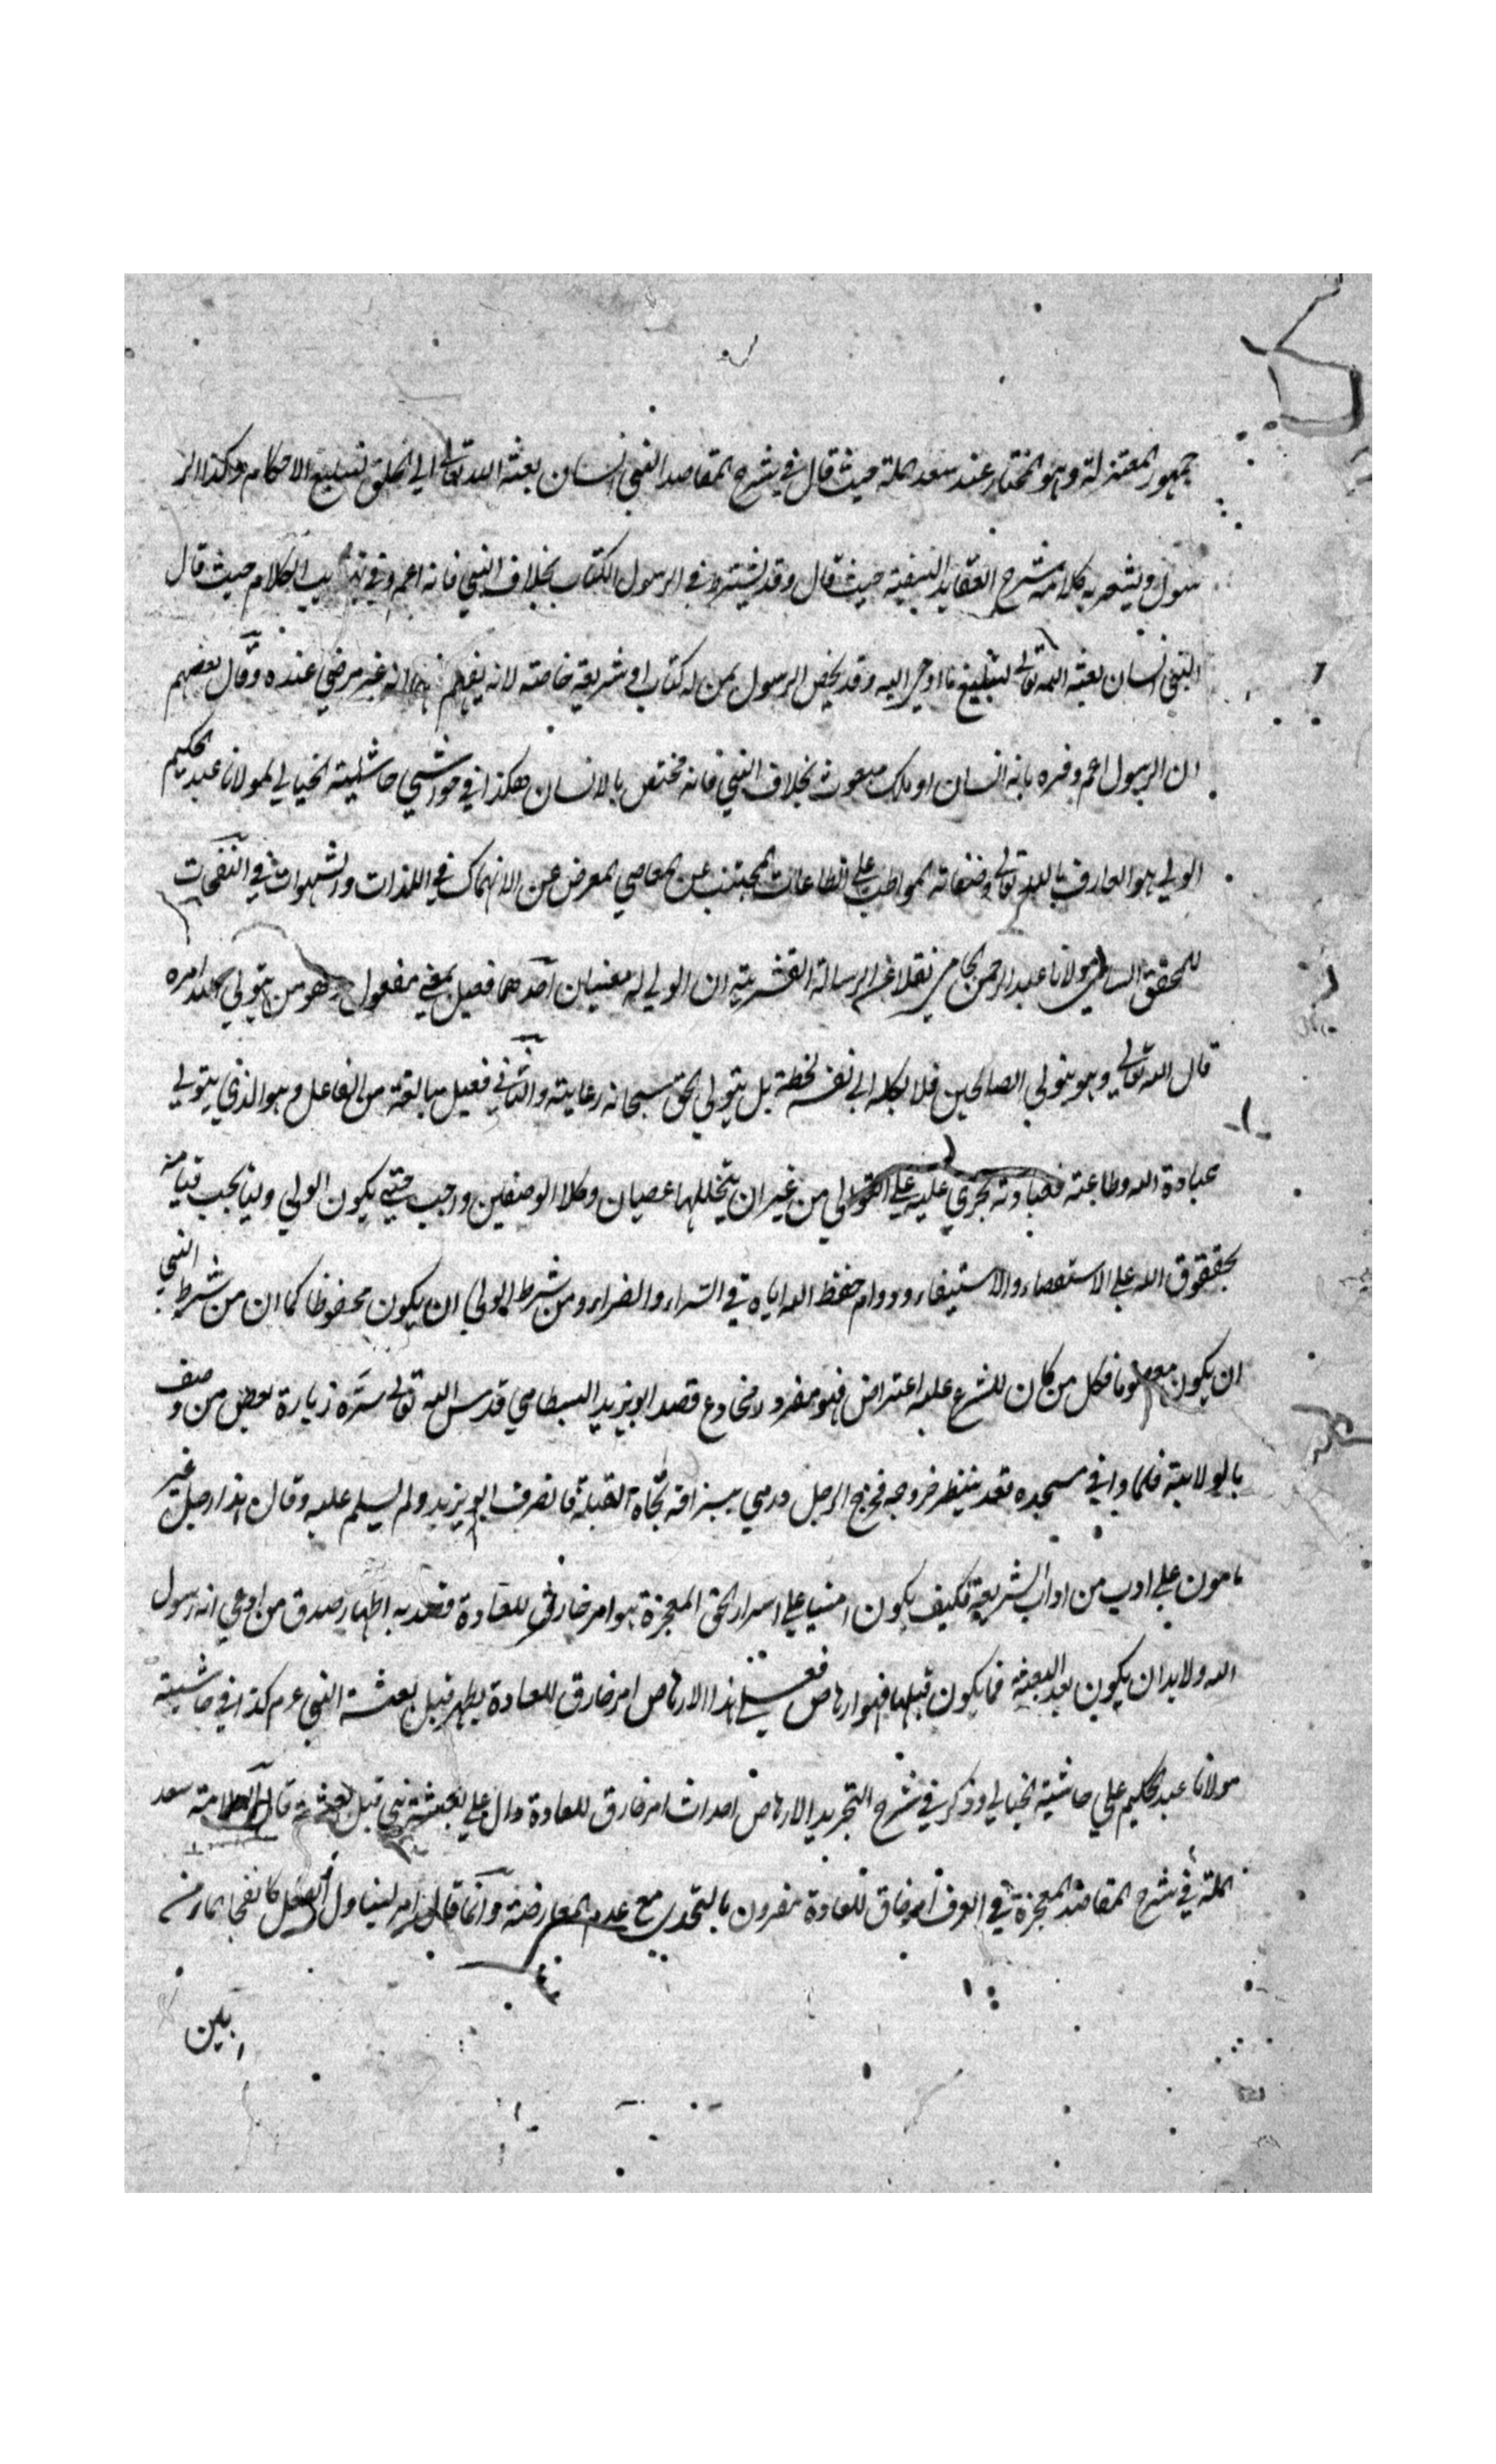 جمهور المعتزلة وهو المختار عند سعد الملة حيث قال في شرح المقاصد النبي انسان بعثه الله تعالى الى الخلق لتبليغ الاحكام وكذا الر
سول ويشعر به كلامه في شرح العقايد النسفية حيث قال وقد يشترط في الرسول الكتاب بخلاف النبي فانه اعم وفي تهذيب الكلام حيث قال
النبي انسان بعثه الله تعالى لتبليغ ما اوحي اليه وقد يخص الرسول بمن له كتاب او شريعة خاصة لانه يفهم انه غير مرضي عنده وقال بعضهم
ان الرسول اعم وفسره بانه انسان او ملك مبعوث بخلاف النبي فانه مختص بالانسان هكذا في حواشي حاشية الخيالي لمولانا عبد الحكيم
الولي هو العارف بالله تعالى وصفاته المواظب على الطاعات المجتنب عن المعاصي المعرض عن الانهماك في اللذات والشهوات في النفحات
للمحقق السامي مولانا عبد الرحمن الجامي نقلا عن الرسالة القشرية ان الولي له معنيان احدهما فعيل بمعنى مفعول وهو من يتولى الله امره
قال الله تعالى وهو يتولى الصالحين فلا يكله الى نفسه لحظة بل يتولى الحق سبحانه رعايته والثاني فعيل مبالغة من الفاعل وهو الذي يتولى
عبادة الله وطاعته فعبادته تجري عليه على التوالي من غير ان يتخللها عصيان وكلا الوصفين واجب حتى يكون الولي وليا يجب قيامه
بحقوق الله على الاستقصاء والاستيفاء ودوام حفظ الله اياه في السراء والضراء ومن شرط الولي ان يكون محفوظا كما ان من شرط النبي
ان يكون معصوما فكل من كان للشرع عليه اعتراض فهو مغرور مخادع قصد ابو يزيد البسطامي قدس الله تعالى سره زيارة بعض من وصف
بالولاية فلما وافى مسجده قعد ينتظر خروجه فخرج الرجل ورمى ببزاقه تجاه القبلة فانصرف ابو يزيد ولم يسلم عليه وقال هذا رجل غير
مامون على ادب من اداب الشريعة فكيف يكون امينا على اسرار الحق المعجزة هو امر خارق للعادة قصد به اظهار صدق من ادعى انه رسول
الله ولا بد ان يكون بعد البعثة فما يكون قبلها فهو ارهاص فعلى هذا الارهاص امر خارق للعادة يظهر قبل بعثة النبي عم كذا في حاشية
مولانا عبد الحكيم على حاشية الخيالي وذكر في شرح التجريد الارهاص احداث امر خارق للعادة دال على بعثة نبي قبل بعثته قال العلامة سعد
الملة في شرح المقاصد المعجزة في العرف امر خارق للعادة مقرون بالتحدي مع عدم المعارضة وانما قال امر ليتناول الفعل كانفجار الماء من
بين